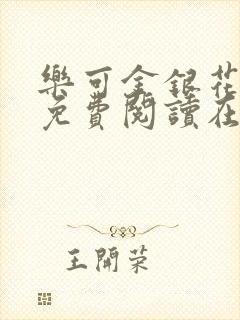 樂可金銀花
免費閱讀在
王開荣